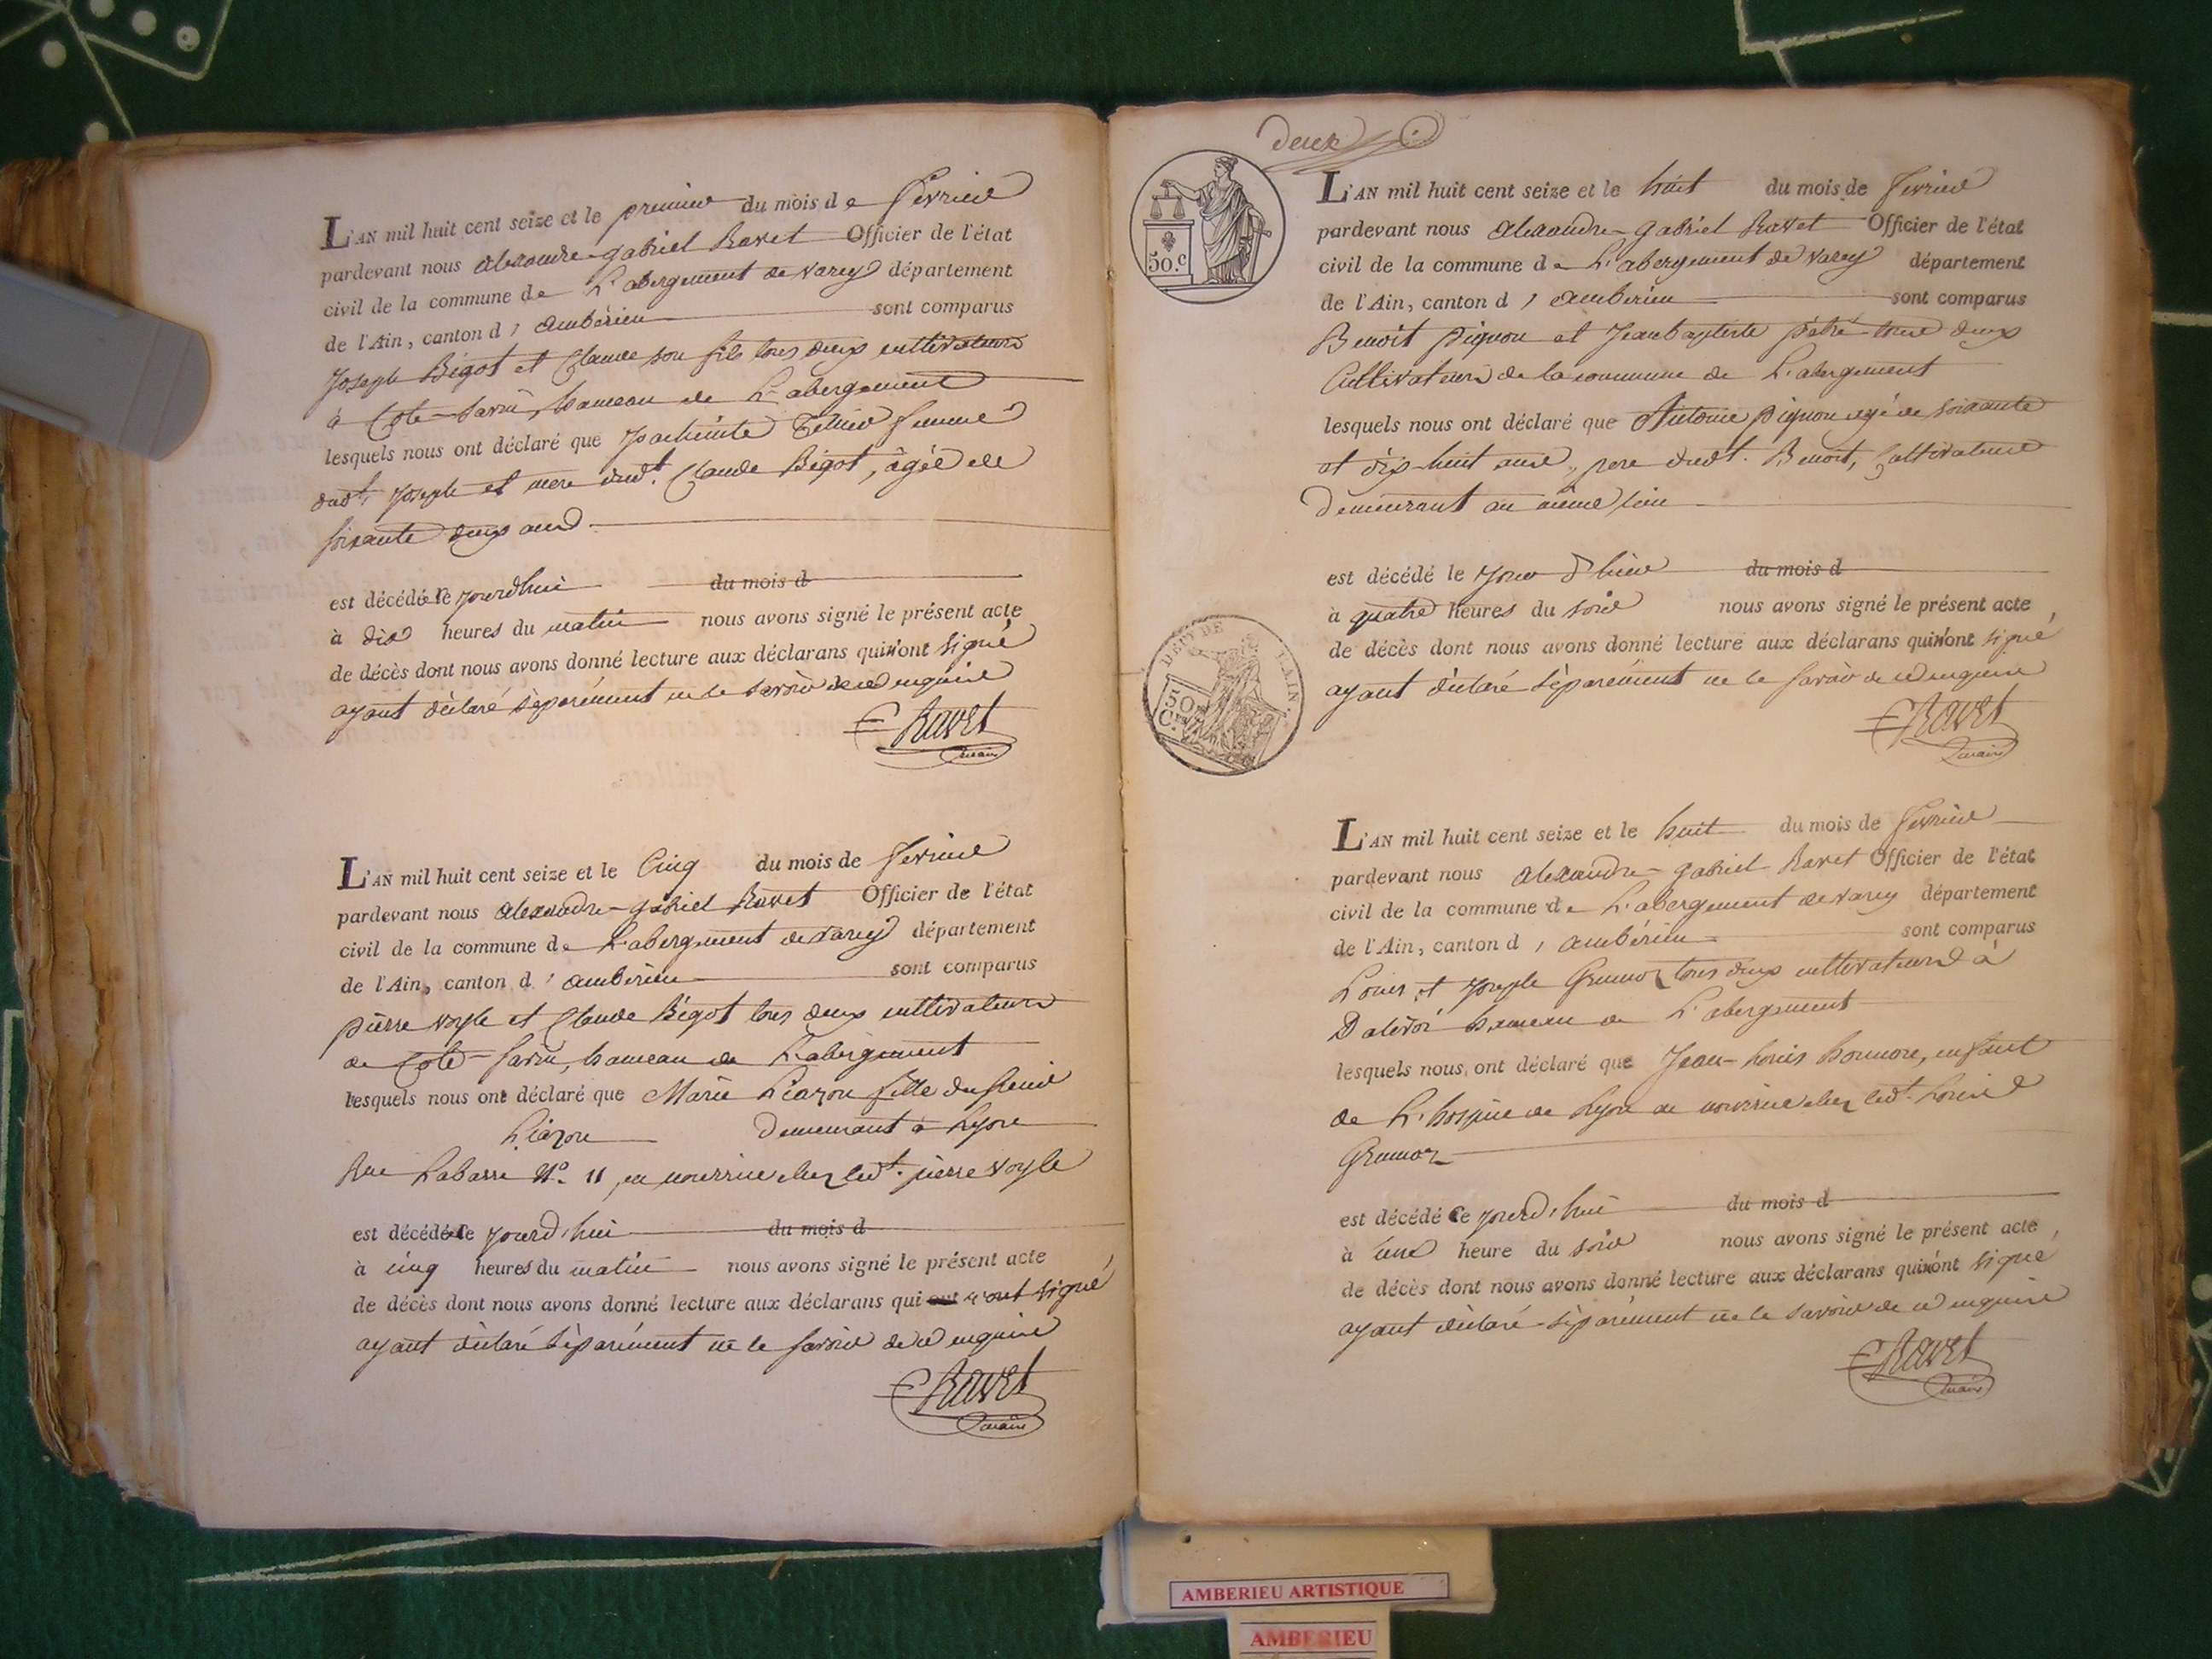 L'AN mil huit cent seize et le premier du mois de fevrier
pardevant nous alexandre-gabriel Ravet Officier de l'état
civil de la commune de L'abergement de varey département
de l'Ain, canton d'ambérieu sont comparus
Joseph Bigot et Claude son fils tous deux cultivateurs
à Cote-Savin, hameau de L'abergement
lesquels nous ont déclaré que femme
dudt. Joseph et mere dudt. Claude Bigot, àgée de
soixante deux ans
est décédée ce jourdhui du mois d
à dix heures du matin nous avons signé le présent acte
de décès dont nous avons donné lecture aux déclarans qui n'ont signé
ayant déclaré séparément ne le savoir de ce enquis
Ravet
maire
L'AN mil huit cent seize et le Cinq du mois de fevrier
pardevant nous alexandre-gabriel Ravet Officier de l'état
civil de la commune de L'abergement de varey département
de l'Ain, canton d'ambérieu sont comparus
pierre voyle et Claude Bigot tous deux cultivateurs
de Cote-Savin, hameau de L'abergement
lesquels nous ont déclaré que Marie fille du
demeurant à Lyon
Rue N°. 11, en nourrice chez ledt. pierre voyle
est décédée ce jourd'hui du mois d
à cinq heures du matin nous avons signé le présent acte
de décès dont nous avons donné lecture aux déclarans qui ont n'ont signé
ayant déclaré séparément ne le savoir de ce enquis
Ravet
maire
deux
50.c
L'AN mil huit cent seize et le huit du mois de fevrier
pardevant nous alexandre-gabriel Ravet Officier de l'état
civil de la commune de L'abergement de varey département
de l'Ain, canton d'ambérieu sont comparus
Benoit pignon et Jeanbaptiste tous deux
Cultivateurs de la commune de L'abergement
lesquels nous ont déclaré que Antoine pignon agé de soixante
et dix-huit ans, pere dudt. Benoit, Cultivateur
demeurant au même lieu
est décédé le jour d'hier du mois d
à quatre heures du soir nous avons signé le présent acte
de décès dont nous avons donné lecture aux déclarans qui n'ont signé
ayant déclaré séparément ne le savoir de ce enquis
DEPT DE L'AIN.
50
Ces
Ravet
maire
L'AN mil huit cent seize et le huit du mois de fevrier
pardevant nous alexandre-gabriel Ravet Officier de l'état
civil de la commune de L'abergement de varey département
de l'Ain, canton d'ambérieu sont comparus
Louis et Joseph Grumoz tous deux cultivateurs à
Dalivoi hameau de L'abergement
lesquels nous ont déclaré que Jean-Louis enfant
de L'hospice de Lyon en nourrice chez ledt. Louis
Grumoz
est décédé ce jourd'hui du mois d
à une heure du soir nous avons signé le présent acte
de décès dont nous avons donné lecture aux déclarans qui n'ont signé
ayant déclaré séparément ne le savoir de ce enquis
Ravet
maire
AMBERIEU ARTISTIQUE
AMBERIEU